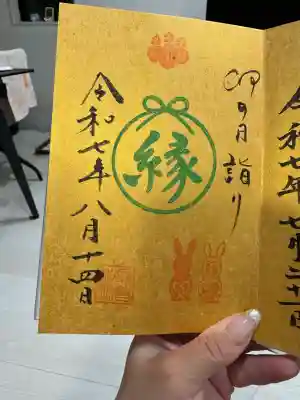 令和七年七月
卯の月詣り
縁
令和七年八月十四日